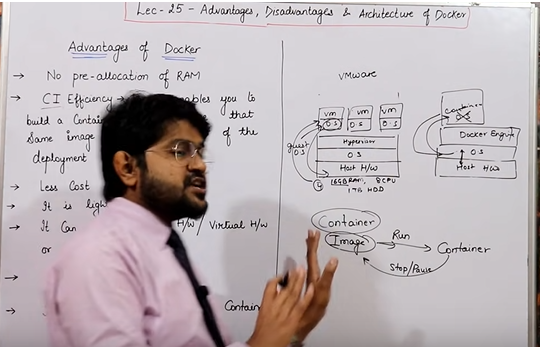 Lec - 25 - Advantages, Disadvantages & Architecture of Docker
Advantages of Docker
→ No pre-allocation of RAM
→ CI Efficiency → ables you to
build a Contain that
Same image of the
deployment
→ Less Cost
→ It is ligh
→ It Can H/w / Virtual H/w
or
→
→ Contain
VMware
VM VM VM
O.S O.S O.S
Hypervisor
O.S
Host H/W
guest
O.S
16GB RAM, 8CPU
1TB HDD
Container
O.S
Docker Engine
O.S
Host H/W
Container
Image Run Container
Stop/Pause